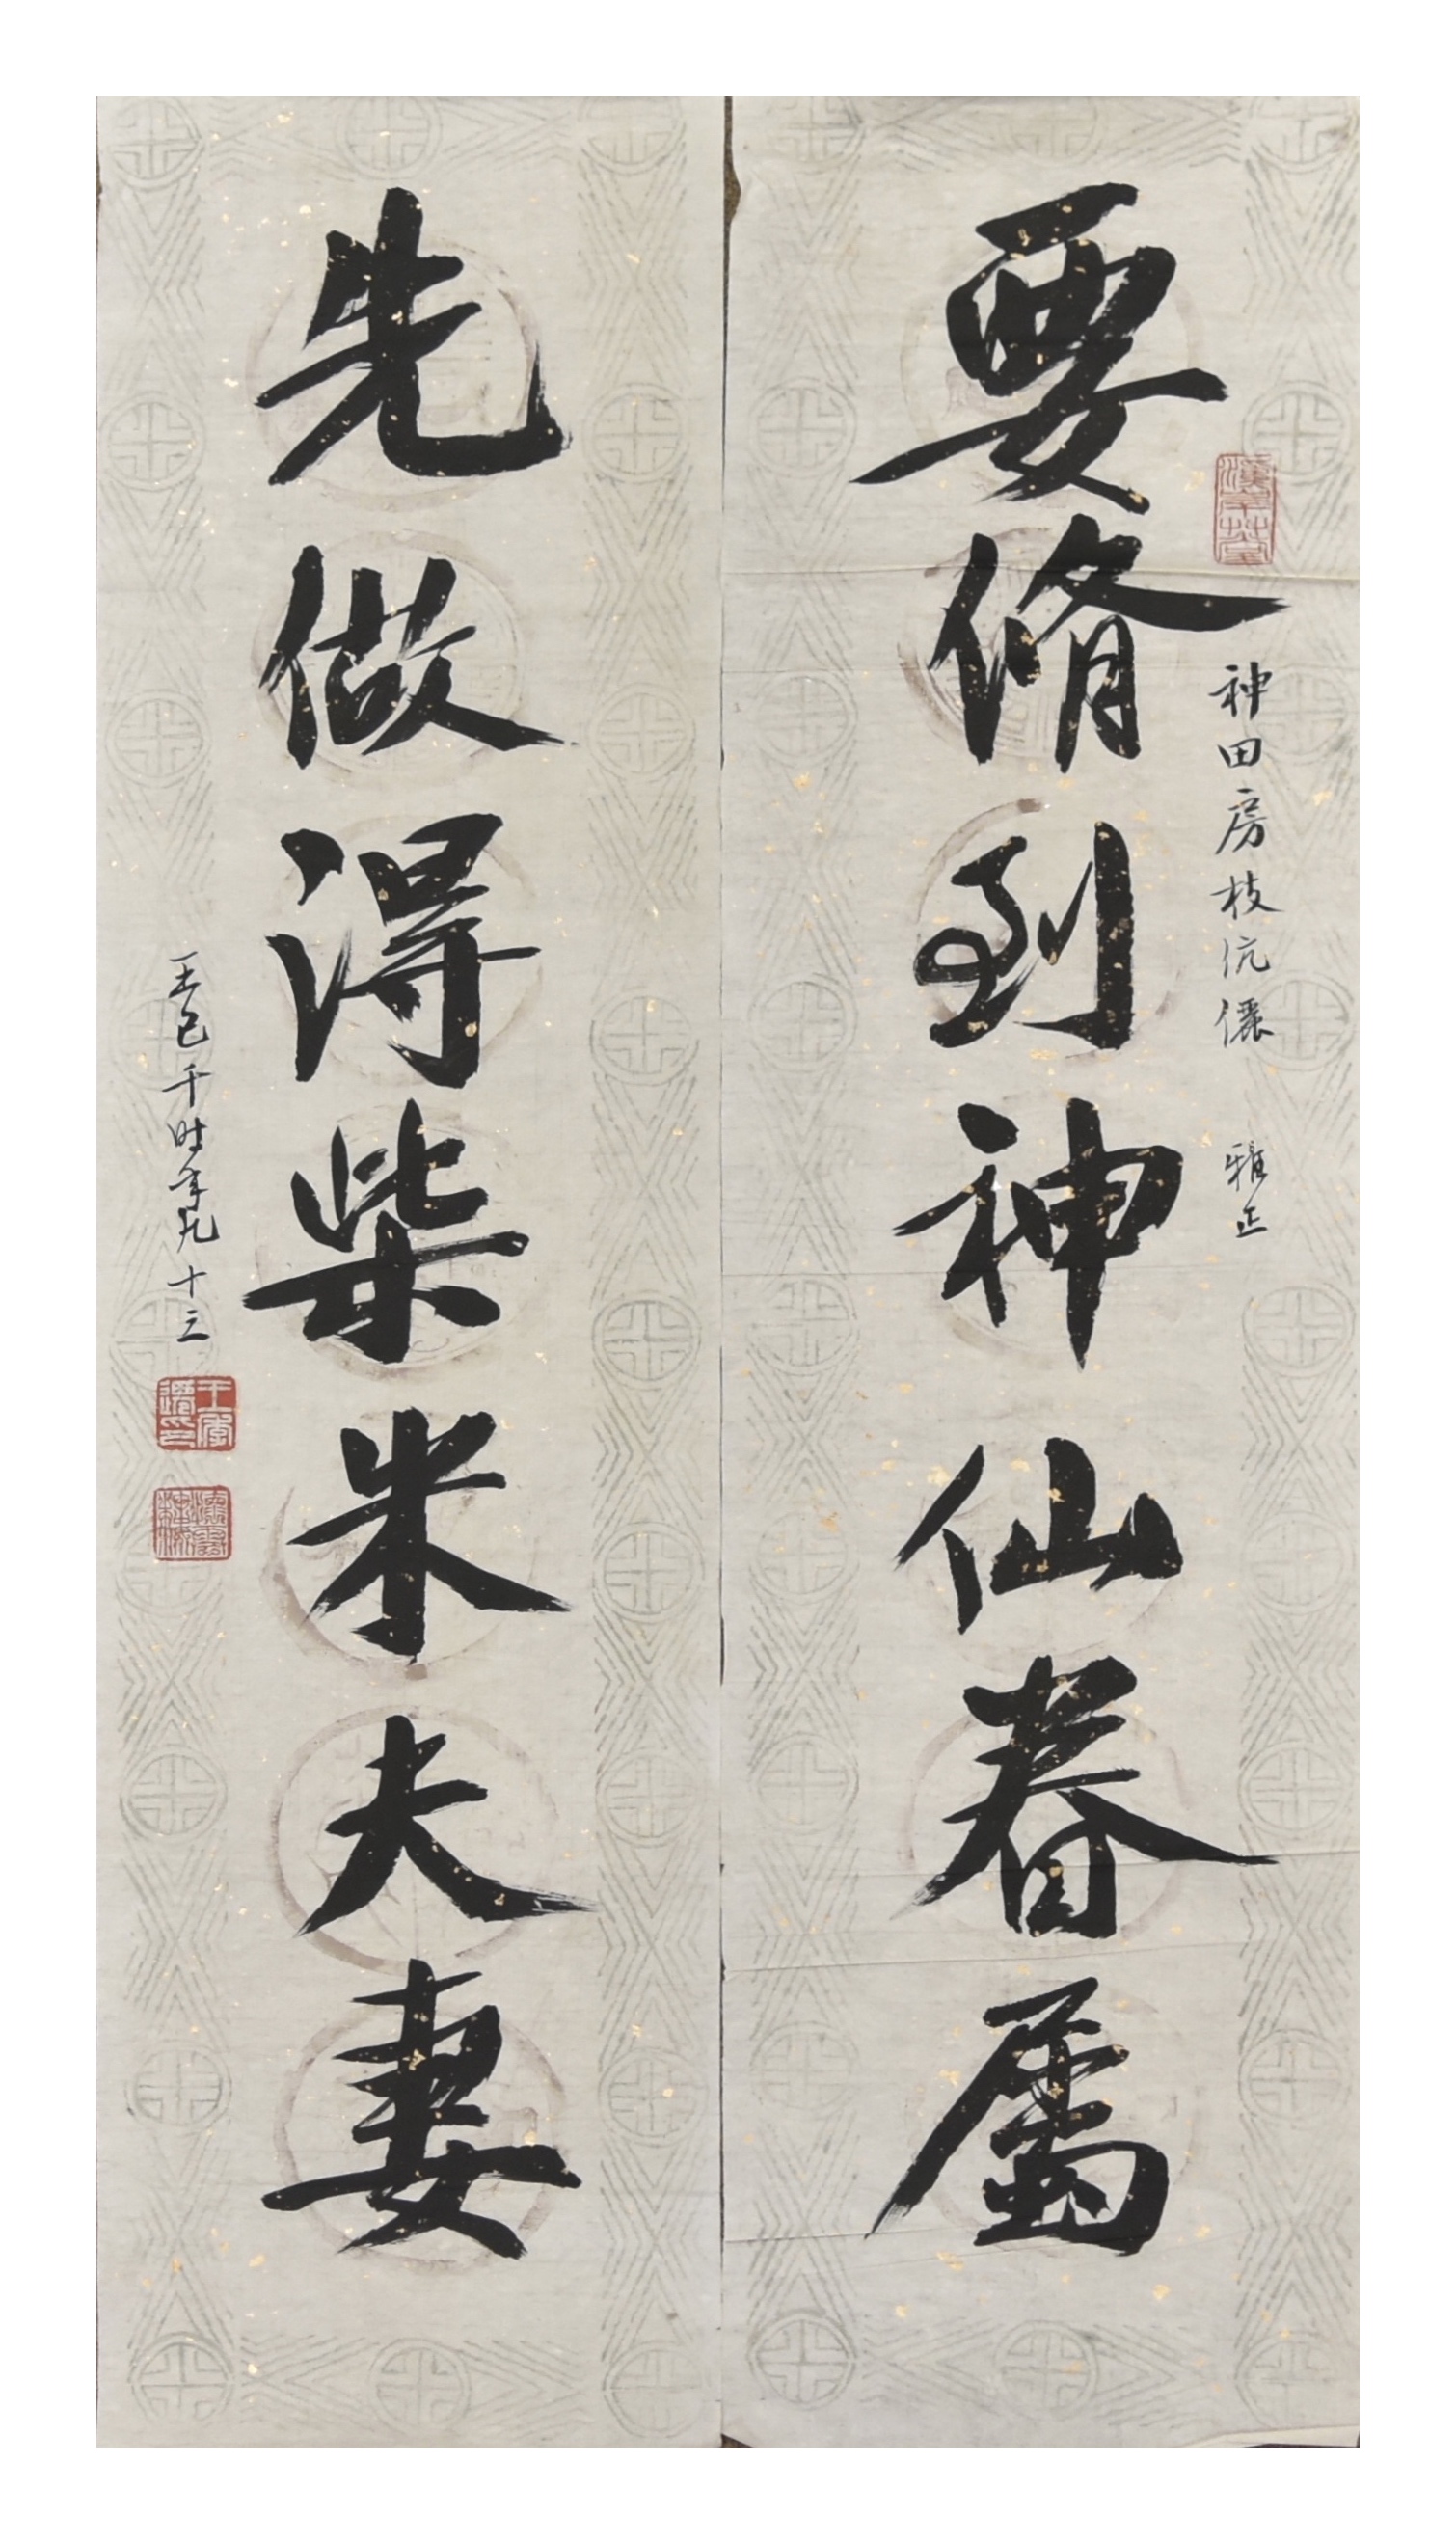 要脩到神仙眷屬
神田房枝伉儷 雅正
先做得柴米夫妻
王己千時年九十三